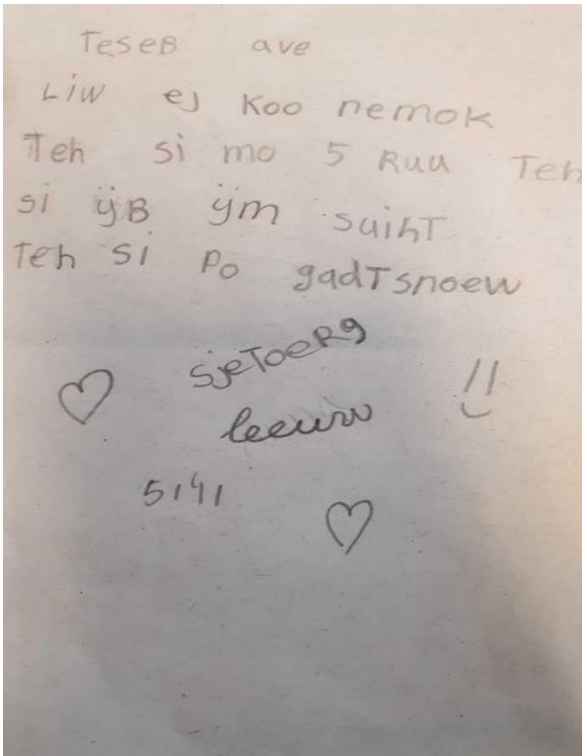 TeseB ave
Liw ej Koo nemok
Teh si mo 5 Ruu Teh
si ÿB ÿm suihT
Teh si Po gadTsnoew
SjeToeRg
leeuw
5141